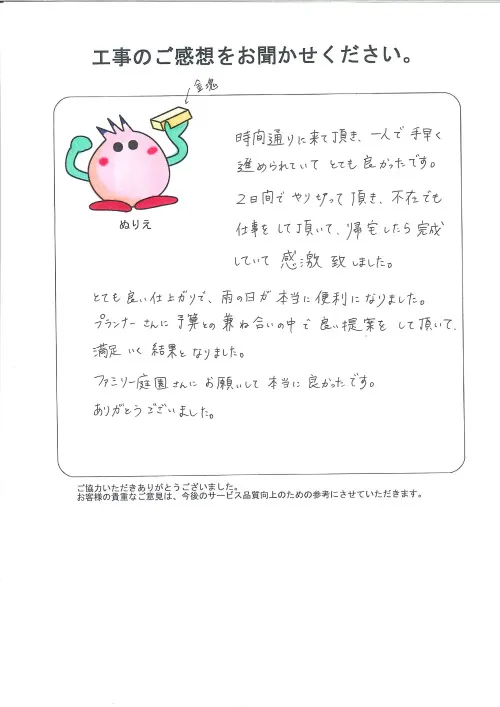 工事のご感想をお聞かせください。
金塊
時間通りに来て頂き、一人で手早く
進められていてとても良かったです。
2日間でやり切って頂き、不在でも
仕事をして頂いて、帰宅したら完成
していて感激致しました。
ぬりえ
とても良い仕上がりで、雨の日が本当に便利になりました。
プランナーさんに予算との兼ね合いの中で良い提案をして頂いて、
満足いく結果となりました。
ファミリー庭園さんにお願いして本当に良かったです。
ありがとうございました。
ご協力いただきありがとうございました。
お客様の貴重なご意見は、今後のサービス品質向上のための参考にさせていただきます。